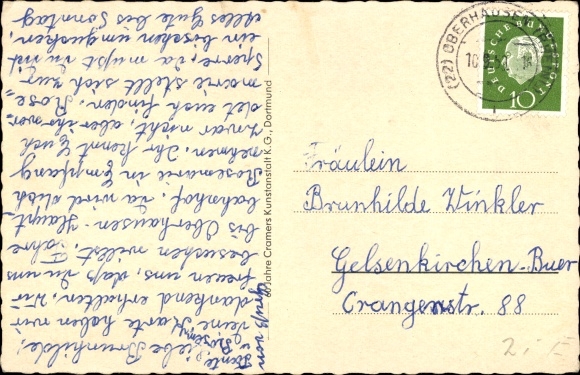 Liebe Brunhilde,
deine Karte haben wir
dankend erhalten. Wir
freuen uns, daß du uns
besuchen willst. Fahre
bis Oberhausen-Haupt-
bahnhof, da wird dich
Rosemarie in Empfang
nehmen. Ihr kennt Euch
zwar nicht, aber ihr wer-
det euch finden. Rose-
marie stellt sich zur
Sperre, da mußt du mal
ein bischen umgucken,
Alles Gute bis Sonntag
Gruß von
Tante
u. Rosemarie
60 Jahre Cramers Kunstanstalt K.G., Dortmund
(22) OBERHAUSEN
10
DEUTSCHE BUNDESPOST
10
Fräulein
Brunhilde Winkler
Gelsenkirchen-Buer
Crangerstr. 88